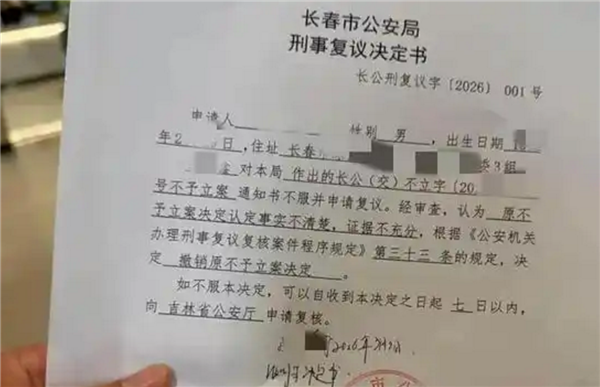 长春市公安局
刑事复议决定书
长公刑复议字〔2026〕001号
申请人 性别 男 ，出生日期
年2 日，住址 长春 类3组
对本局 作出的长公（交）不立字〔20
号不予立案 通知书不服并申请复议。经审查，认为 原不
予立案决定认定事实不清楚，证据不充分，根据《公安机关
办理刑事复议复核案件程序规定》第三十三 条的规定，决
定 撤销原不予立案决定 。
如不服本决定，可以自收到本决定之日起 七 日以内，
向 吉林省公安厅 申请复核。